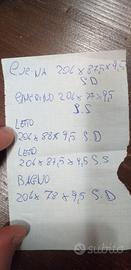 CUCINA 206 x 87,5 x 9,5
S.D
206 x 77 x 9,5
S.S
LETTO
206 x 88 x 9,5 S.D
LETTO
206 x 87,5 x 9,5 S.S
BAGNO
206 x 78 x 9,5 S.D
subito